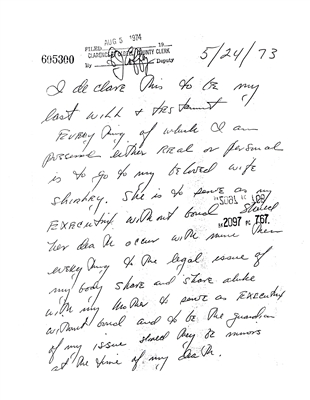 AUG 5 1974
FILED 19
CLARENCE COUNTY CLERK
By Deputy
5/24/73
I declare this to be my
last will & testament
Everything of which I am
possessed either real or personal
is to go to my beloved wife
Shirley. She is to serve as my
Executrix without bond Should
2097 PG 767.
her death occur with mine then
everything to the legal issue of
my body share and share alike
with my Mother to serve as Executrix
without bond and to be the guardian
of my issue should they be minors
at the time of my death.